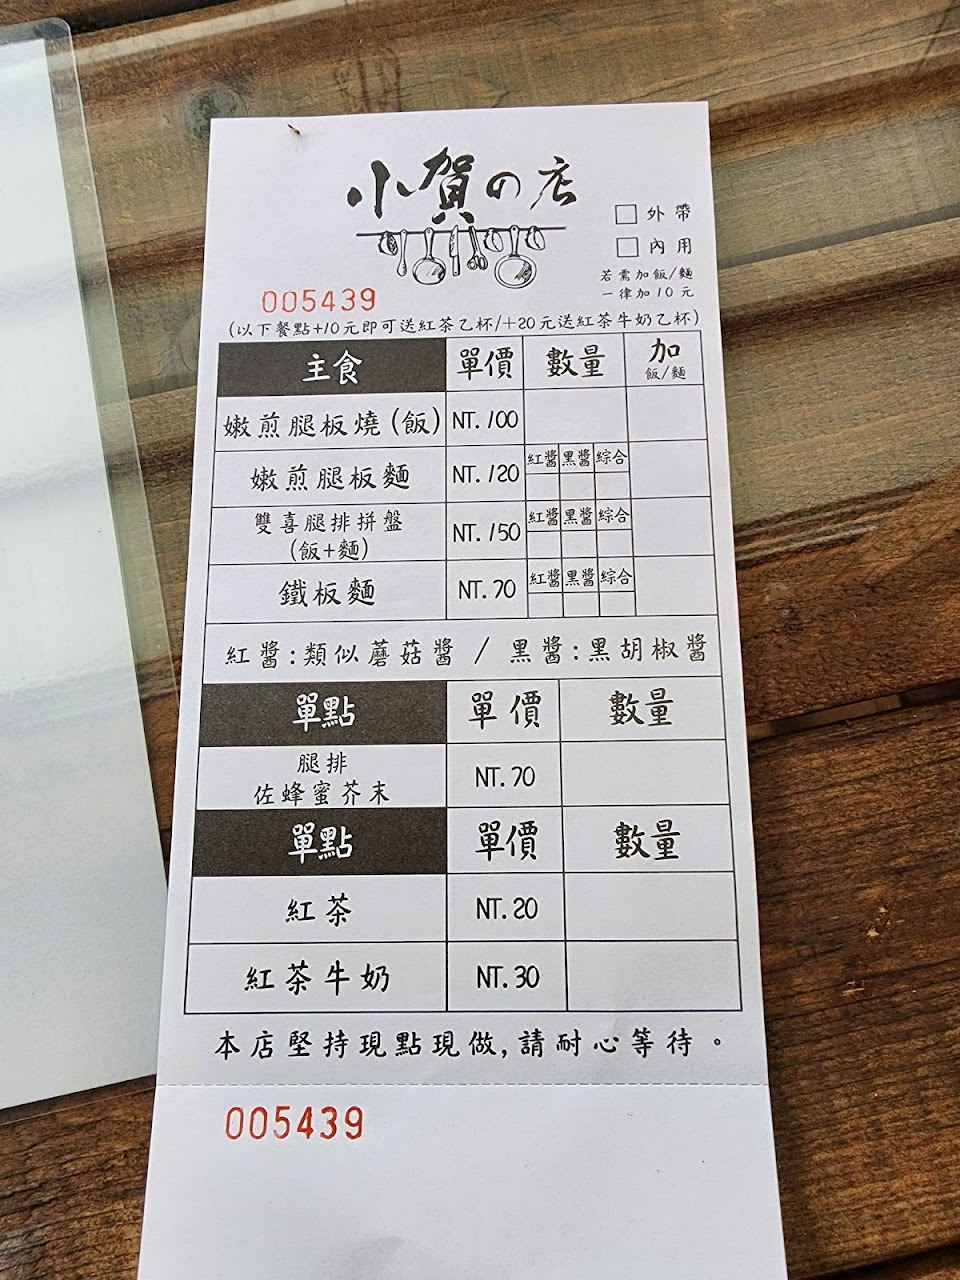 小賀の店
外帶
內用
若需加飯/麵
一律加10元
005439
(以下餐點+10元即可送紅茶乙杯/+20元送紅茶牛奶乙杯)
主食 單價 數量 加飯/麵
嫩煎腿板燒(飯) NT.100
嫩煎腿板麵 NT.120 紅醬 黑醬 綜合
雙喜腿排拼盤
(飯+麵) NT.150 紅醬 黑醬 綜合
鐵板麵 NT.70 紅醬 黑醬 綜合
紅醬:類似蘑菇醬 / 黑醬:黑胡椒醬
單點 單價 數量
腿排
佐蜂蜜芥末 NT.70
單點 單價 數量
紅茶 NT.20
紅茶牛奶 NT.30
本店堅持現點現做,請耐心等待。
005439